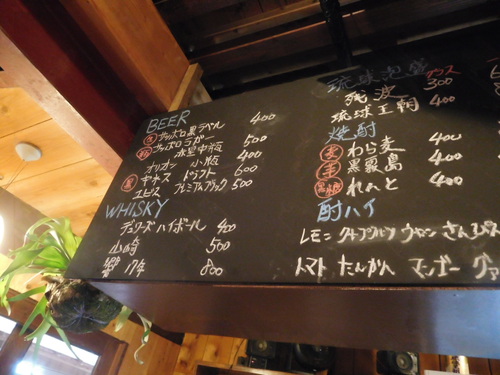 BEER
サッポロ黒ラベル 400
サッポロラガー
氷里中瓶 500
オリオン 小瓶 400
黒 ギネス ドラフト 600
エビス プレミアムブラック 500
WHISKY
デュワーズ ハイボール 400
山崎 500
響 17年 800
琉球泡盛 グラス
残波 300
琉球王朝 400
焼酎
麦 わら麦 400
芋 黒霧島 400
黒糖 れんと 400
酎ハイ
レモン グレープフルーツ ウーロン さんぴん
トマト たんかん マンゴー グァ